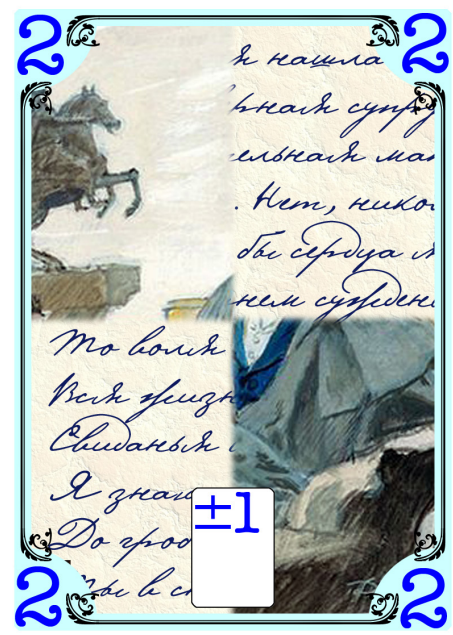 2 2
я нашла
рная супру
ельная мат
. Нет, нико
бы сердца я
нем сужден
То воля
Вся жизн
Свиданья
Я знаю
До гроб
Ты в с
±1
2 2